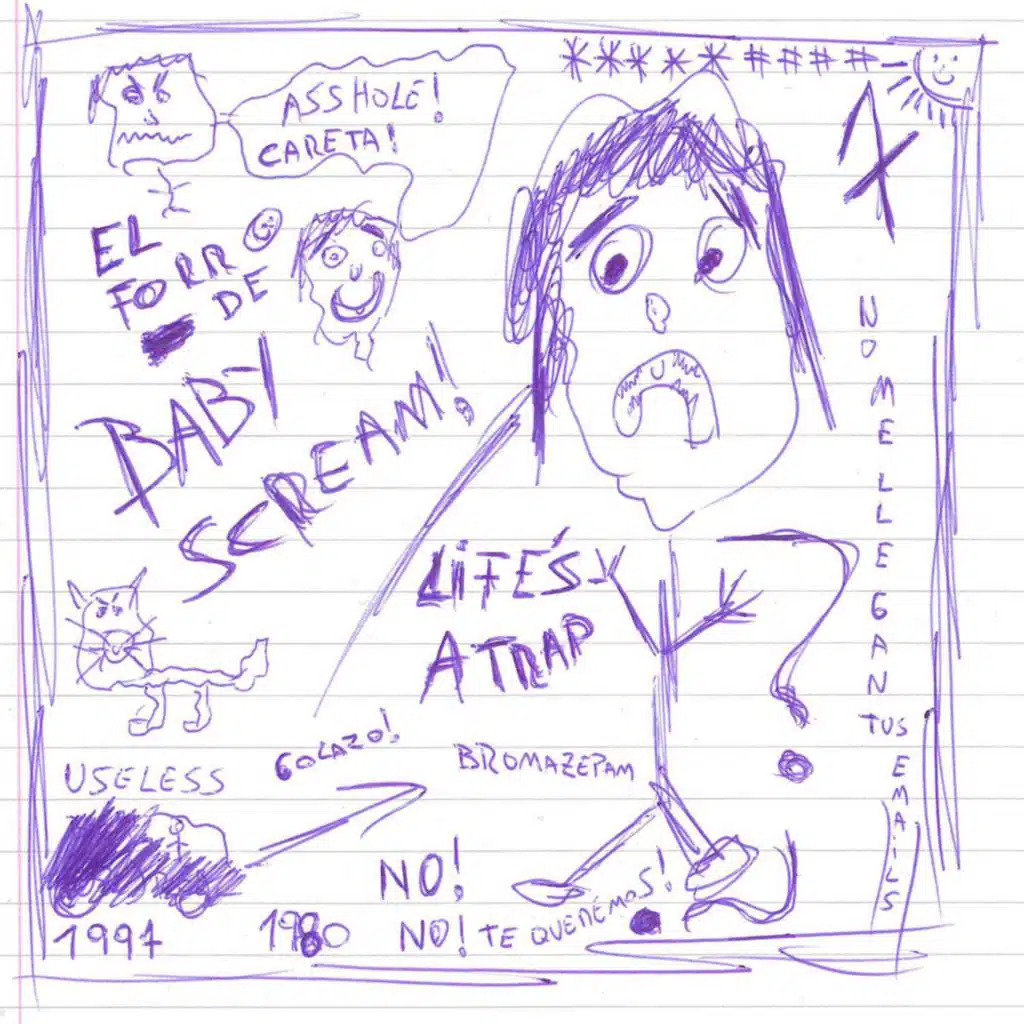 *****####
ASSHOLE!
CARETA!
EL
FORRO
DE
BABY
SCREAM!
NO ME LLEGAN TUS EMAILS
LIFE'S
A TRAP
USELESS
GOLAZO!
BROMAZEPAM
NO!
NO! TE QUEREMOS!
1997
1980